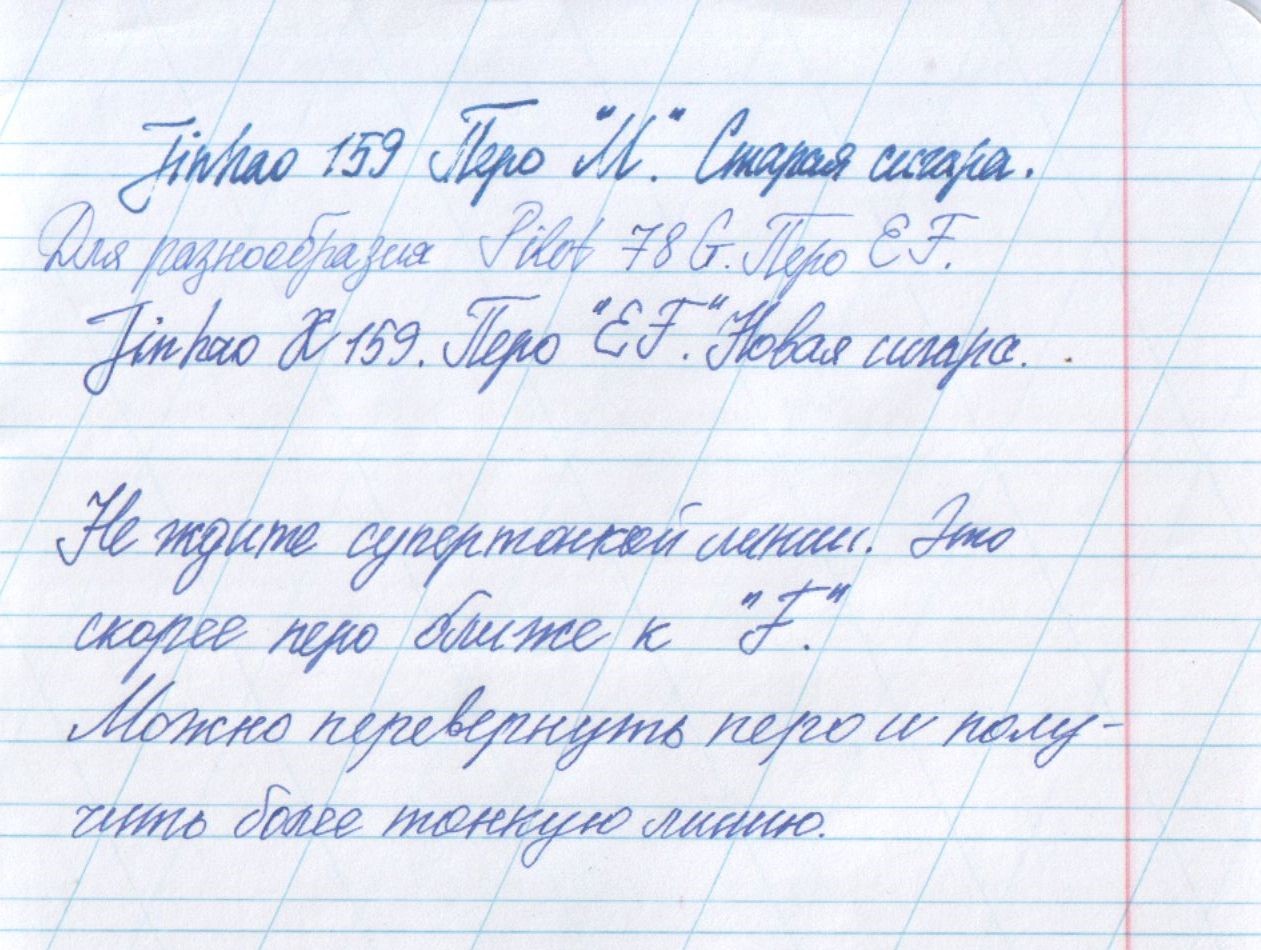 Jinhao 159 Перо "М". Старая сигара.
Для разнообразия Pilot 78 G. Перо EF.
Jinhao X 159. Перо "EF". Новая сигара.
Не ждите супертонкой линии. Это
скорее перо ближе к "F".
Можно перевернуть перо и полу-
чить более тонкую линию.